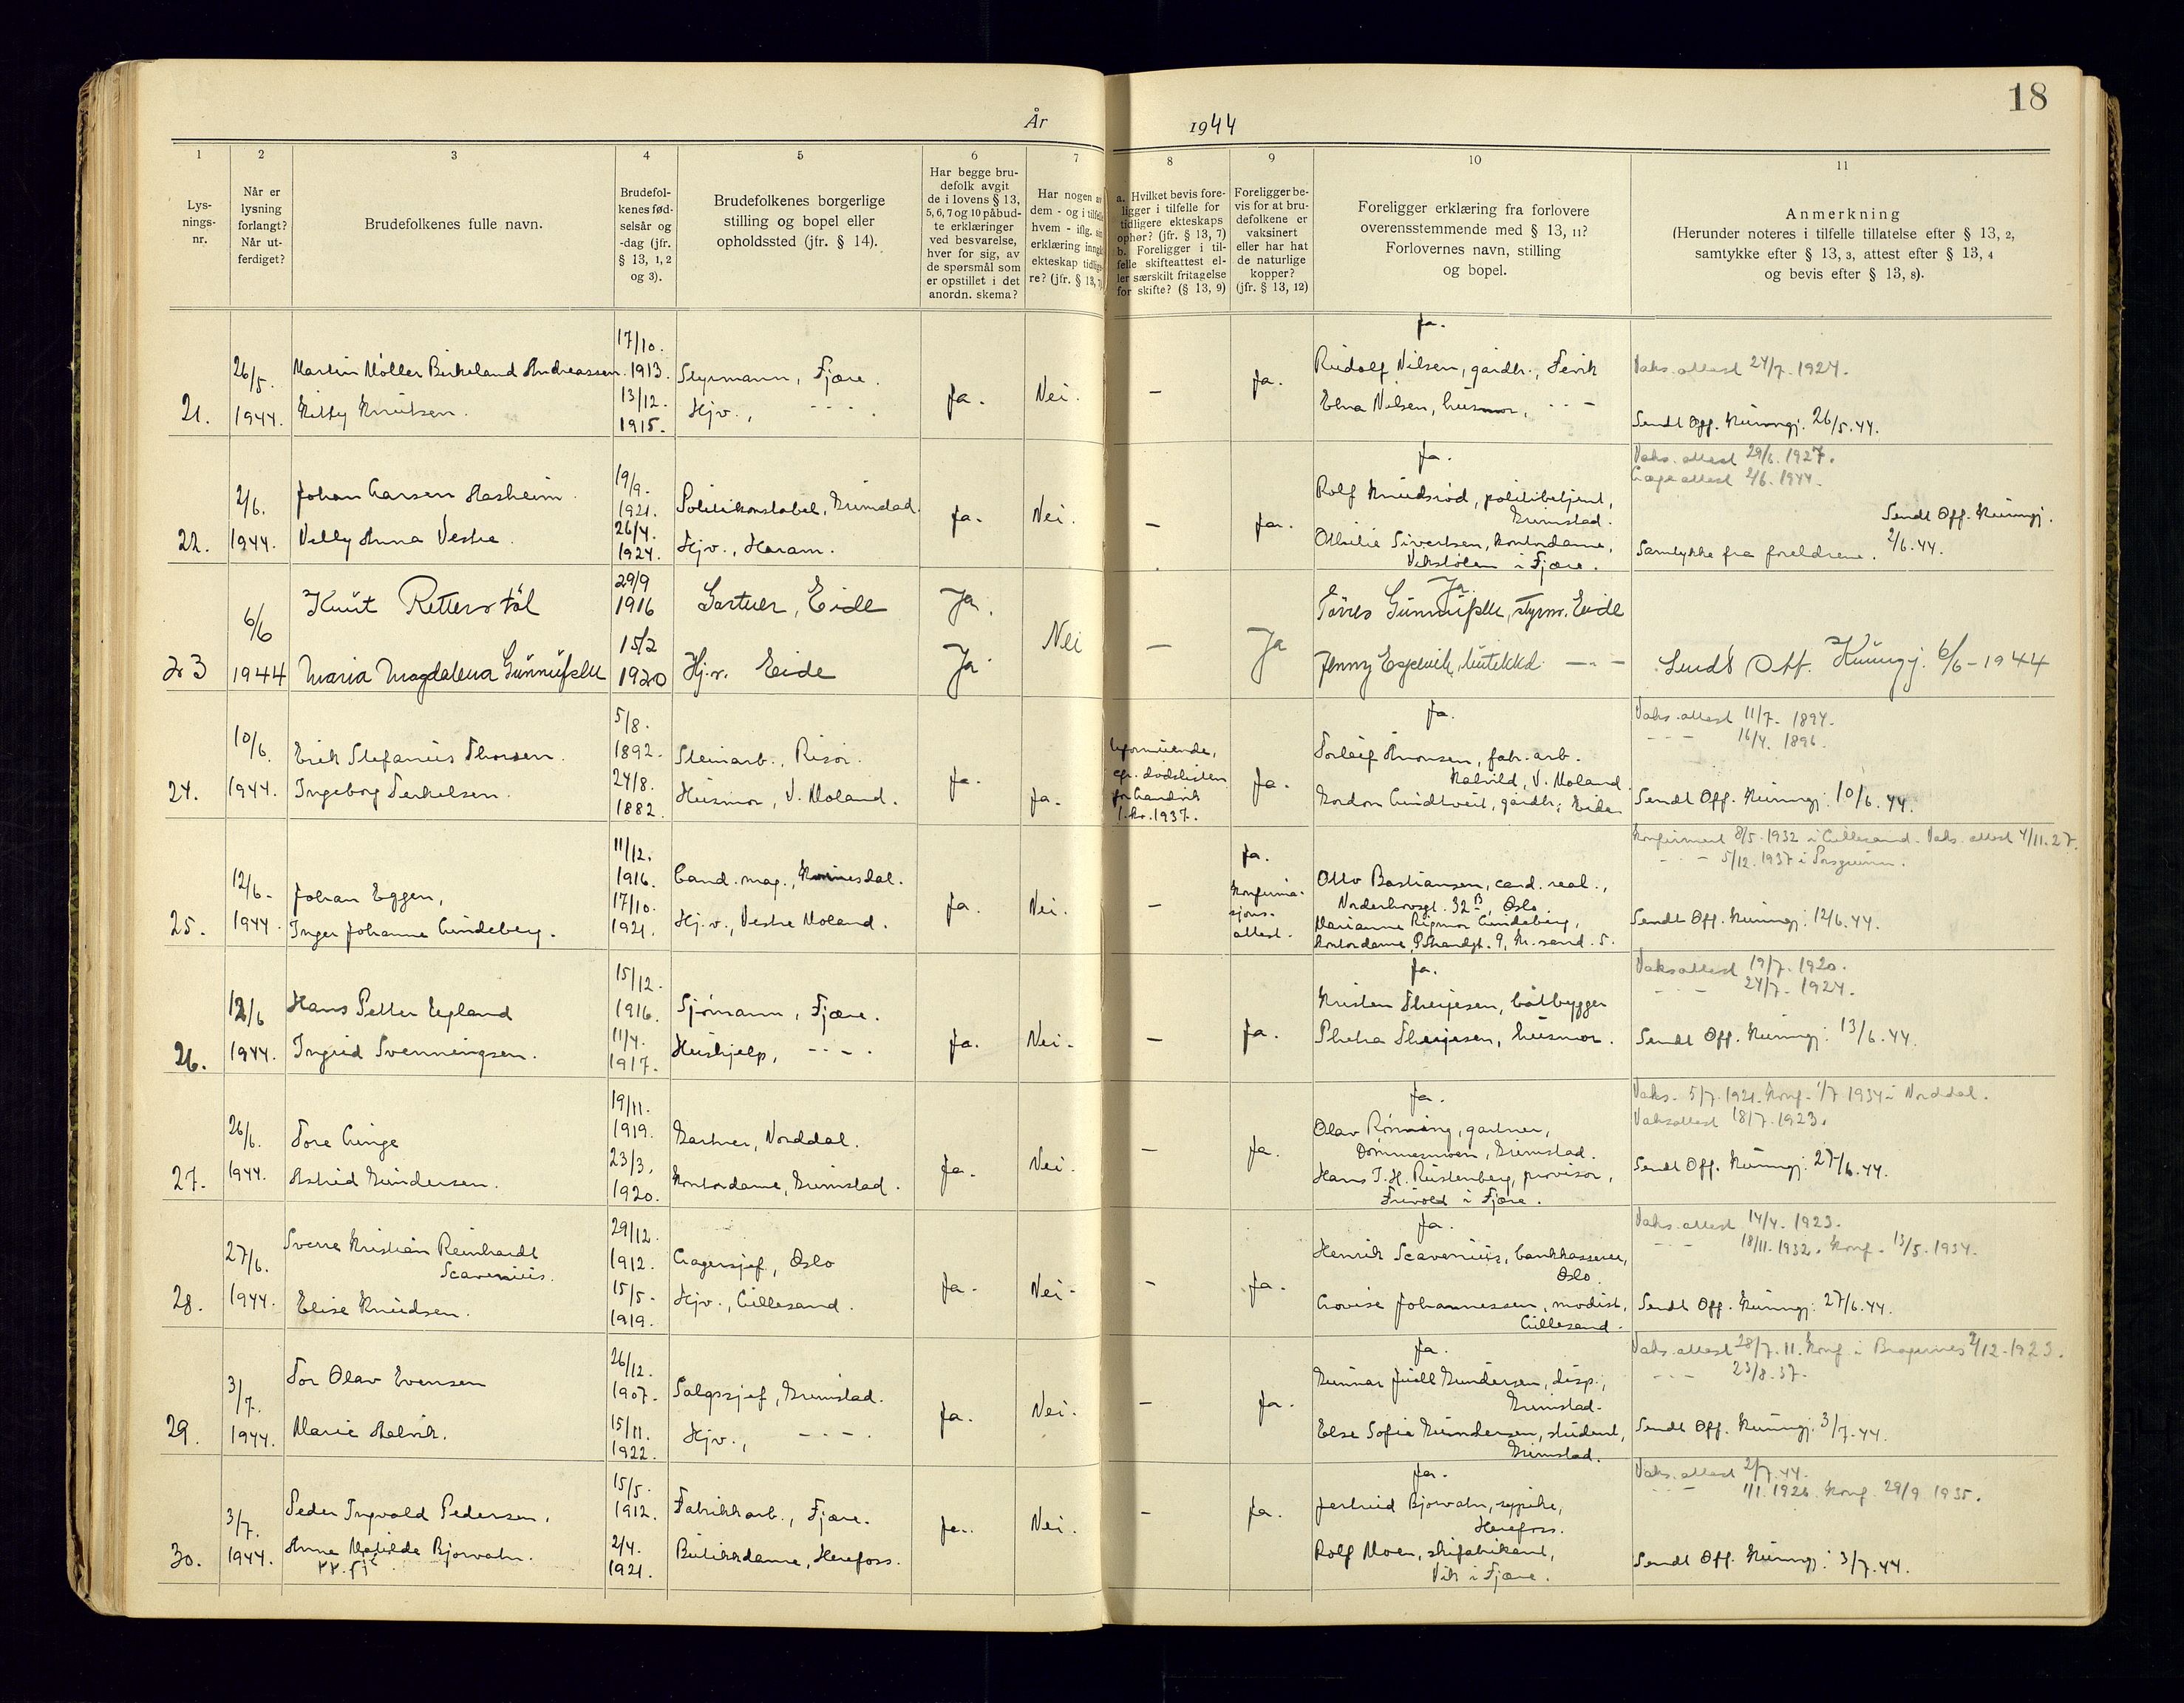 18
År 1944
1 2 3 4 5 6 7 8 9 10 11
Lys-
nings-
nr.
Når er
lysning
forlangt?
Når ut-
ferdiget?
Brudefolkenes fulle navn.
Brudefol-
kenes fød-
selsår og
-dag (jfr.
§ 13, 1, 2
og 3).
Brudefolkenes borgerlige
stilling og bopel eller
opholdssted (jfr. § 14).
Har begge bru-
defolk avgit
de i lovens § 13,
5, 6, 7 og 10 påbud-
te erklæringer
ved besvarelse,
hver for sig, av
de spørsmål som
er opstillet i det
anordn. skema?
Har nogen av
dem - og i tilfelle
hvem - iflg. sin
erklæring inngått
ekteskap tidlige-
re? (jfr. § 13, 7)
a. Hvilket bevis fore-
ligger i tilfelle for
tidligere ekteskaps
ophør? (jfr. § 13, 7)
b. Foreligger i til-
felle skifteattest el-
ler særskilt fritagelse
for skifte? (§ 13, 9)
Foreligger be-
vis for at bru-
defolkene er
vaksinert
eller har hat
de naturlige
kopper?
(jfr. § 13, 12)
Foreligger erklæring fra forlovere
overensstemmende med § 13, 11?
Forlovernes navn, stilling
og bopel.
Anmerkning
(Herunder noteres i tilfelle tillatelse efter § 13, 2,
samtykke efter § 13, 3, attest efter § 13, 4
og bevis efter § 13, 8).
21.
26/5.
1944.
Martin Møller Birkeland Andreassen.
Kitty Knutsen.
17/10.
1913.
13/12.
1915.
Styrmann, Fjære.
Hjv., - - - -.
Ja.
Nei.
-
Ja.
Ja.
Rudolf Nilsen, gårdbr., Fevik
Elna Nilsen, husmor, - - -
Vaks. attest 24/7. 1924.
Sendt Off. Kunngj. 26/5.44.
22.
2/6.
1944.
Johan Larsen Aasheim.
Nelly Anna Vestre.
19/9.
1921.
26/4.
1924.
Politikonstabel, Grimstad.
Hjv., Haram.
Ja.
Nei.
-
Ja.
Ja.
Rolf Knudsrød, politibetjent,
Grimstad.
Othilie Sivertsen, kontordame,
Vikstølen i Fjære.
Vaks. attest 29/6. 1927.
Lægeattest 2/6. 1944.
Sendt Off. Kunngj.
2/6.44.
Samtykke fra foreldrene.
23
6/6
1944
Knut Retterstøl
Maria Magdalena Gunnufsen
29/9
1916
15/2
1920
Gartner, Eide
Hj.v. Eide
Ja.
Ja.
Nei
-
Ja
Ja.
Torres Gunnufsen, styrm. Eide
Jenny Espevik, butekkd. - - -
Sendt Off. Kunngj. 6/6-1944
24.
10/6.
1944.
Erik Stefanius Thorsen.
Ingeborg Terkelsen.
5/8.
1892.
24/8.
1882.
Steinarb., Risør.
Husmor, V. Moland.
Ja.
Ja.
Uformuende,
cfr. dødslisten
for Landvik
1. kv. 1937.
Ja.
Ja.
Torleif Aronsen, fabr. arb.
Kalvild, V. Moland.
Gordon Lindtveit, gårdbr., Eide
Vaks. attest 11/7. 1894.
- - - 16/4. 1896.
Sendt Off. Kunngj. 10/6.44.
25.
12/6.
1944.
Johan Eggen,
Inger Johanne Lindeberg.
11/12.
1916.
17/10.
1921.
Cand. mag., Kvinesdal.
Hj.v., Vestre Moland.
Ja.
Nei.
-
Ja.
Konfirma-
sjons-
attest.
Otto Bastiansen, cand. real.,
Norderhovsgt. 32 B, Oslo
Marianne Rigmor Lindeberg,
kontordame, P. Strandgt. 9, Kr. sand. S.
Konfirmert 8/5. 1932 i Lillesand. Vaks. attest 4/11.27.
- - - 5/12. 1937 i Porsgrunn.
Sendt Off. Kunngj. 12/6.44.
26.
12/6
1944.
Hans Petter Egeland
Ingrid Svenningsen.
15/12.
1916.
11/4.
1917.
Sjømann, Fjære.
Hushjelp, - - - -.
Ja.
Nei.
-
Ja.
Ja.
Kristen Therjesen, båtbygger
Phetra Therjesen, husmor.
Vaksattest 19/7. 1920.
- - - 24/7. 1924.
Sendt Off. Kunngj: 13/6.44.
27.
26/6.
1944.
Tore Linge
Astrid Gundersen.
19/11.
1919.
23/3.
1920.
Gartner, Norddal.
Kontordame, Grimstad.
Ja.
Nei.
-
Ja.
Ja.
Olav Rønning, gartner,
Dømmesmoen, Grimstad.
Hans T. H. Rustenberg, provisor,
Frivold i Fjære.
Vaks. 5/7. 1921. Konf. 1/7 1934 i Norddal.
Vaksattest 18/7. 1923.
Sendt Off. Kunngj: 27/6.44.
28.
27/6.
1944.
Sverre Kristian Reinhardt
Scavenius.
Elise Knudsen.
29/12.
1912.
15/5.
1919.
Lagersjef, Oslo
Hjv., Lillesand.
Ja.
Nei.
-
Ja.
Ja.
Henrik Scavenius, bankkasserer,
Oslo.
Lovise Johannessen, modist,
Lillesand.
Vaks. attest 14/4. 1923.
- - - 18/11. 1932. Konf. 13/5. 1934.
Sendt Off. Kunngj: 27/6.44.
29.
3/7.
1944.
Tor Olav Evensen
Marie Halvik.
26/12.
1907.
15/11.
1922.
Salgssjef, Grimstad.
Hjv., - - - -.
Ja.
Nei.
-
Ja.
Ja.
Gunnar Juell Gundersen, disp.,
Grimstad.
Else Sofie Gundersen, student,
Grimstad.
Vaks. attest 28/7. 11. Konf. i Bragernes 2/12-1923.
- - - 23/8. 37.
Sendt Off. Kunngj: 3/7.44.
30.
3/7.
1944.
Peder Ingvald Pedersen.
Anna Matilde Bjorvatn.
15/5.
1912.
2/4.
1921.
Fabrikkarb., Fjære.
Butikkdame, Herefoss.
Ja.
Nei.
-
Ja.
Ja.
Jertrud Bjorvatn, sypike,
Herefoss.
Rolf Moen, skifabrikant,
Vik i Fjære.
Vaks. attest 2/7.44.
- - - 1/1. 1926. Konf. 29/9 1935.
Sendt Off. Kunngj: 3/7.44.